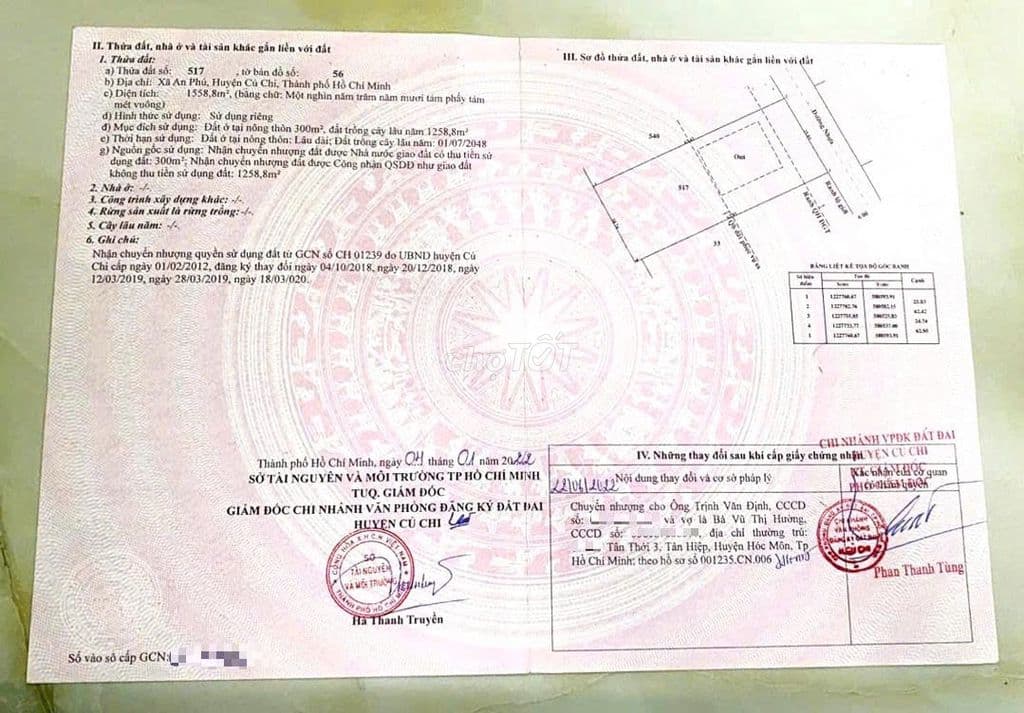 II. Thửa đất, nhà ở và tài sản khác gắn liền với đất
1. Thửa đất:
a) Thửa đất số: 517 , tờ bản đồ số: 56
b) Địa chỉ: Xã An Phú, Huyện Củ Chi, Thành phố Hồ Chí Minh
c) Diện tích: 1558,8m², (bằng chữ: Một nghìn năm trăm năm mươi tám phẩy tám
mét vuông)
d) Hình thức sử dụng: Sử dụng riêng
đ) Mục đích sử dụng: Đất ở tại nông thôn 300m², đất trồng cây lâu năm 1258,8m²
e) Thời hạn sử dụng: Đất ở tại nông thôn: Lâu dài; Đất trồng cây lâu năm: 01/07/2048
g) Nguồn gốc sử dụng: Nhận chuyển nhượng đất được Nhà nước giao đất có thu tiền sử
dụng đất: 300m²; Nhận chuyển nhượng đất được Công nhận QSDĐ như giao đất
không thu tiền sử dụng đất: 1258,8m²
2. Nhà ở: -/-
3. Công trình xây dựng khác: -/-
4. Rừng sản xuất là rừng trồng: -/-
5. Cây lâu năm: -/-
6. Ghi chú:
Nhận chuyển nhượng quyền sử dụng đất từ GCN số CH 01239 do UBND huyện Củ
Chi cấp ngày 01/02/2012, đăng ký thay đổi ngày 04/10/2018, ngày 20/12/2018, ngày
12/03/2019, ngày 28/03/2019, ngày 18/03/020.
Thành phố Hồ Chí Minh, ngày 04 tháng 01 năm 2022
SỞ TÀI NGUYÊN VÀ MÔI TRƯỜNG TP HỒ CHÍ MINH
TUQ. GIÁM ĐỐC
GIÁM ĐỐC CHI NHÁNH VĂN PHÒNG ĐĂNG KÝ ĐẤT ĐAI
HUYỆN CỦ CHI
CỘNG HÒA X.H.C.N VIỆT NAM
SỞ
TÀI NGUYÊN
VÀ MÔI TRƯỜNG
THÀNH PHỐ HỒ CHÍ MINH
Hà Thanh Truyền
Số vào sổ cấp GCN:
III. Sơ đồ thửa đất, nhà ở và tài sản khác gắn liền với đất
Đường Nhựa
540
Ont
517
33
Ranh lộ giới
Ranh QH ĐGT
BẢNG LIỆT KÊ TỌA ĐỘ GÓC RANH
Số hiệu điểm Tọa độ Cạnh
1
2
3
4
1
chợTỐT
IV. Những thay đổi sau khi cấp giấy chứng nhận
Nội dung thay đổi và cơ sở pháp lý
Xác nhận của cơ quan
có thẩm quyền
CHI NHÁNH VPĐK ĐẤT ĐAI
HUYỆN CỦ CHI
Chuyển nhượng cho Ông Trịnh Văn Định, CCCD
số: và vợ là Bà Vũ Thị Hường,
CCCD số: , địa chỉ thường trú:
Tân Thới 3, Tân Hiệp, Huyện Hóc Môn, Tp
Hồ Chí Minh; theo hồ sơ số 001235.CN.006
CHI NHÁNH
VĂN PHÒNG
ĐĂNG KÝ ĐẤT ĐAI
Phan Thanh Tùng